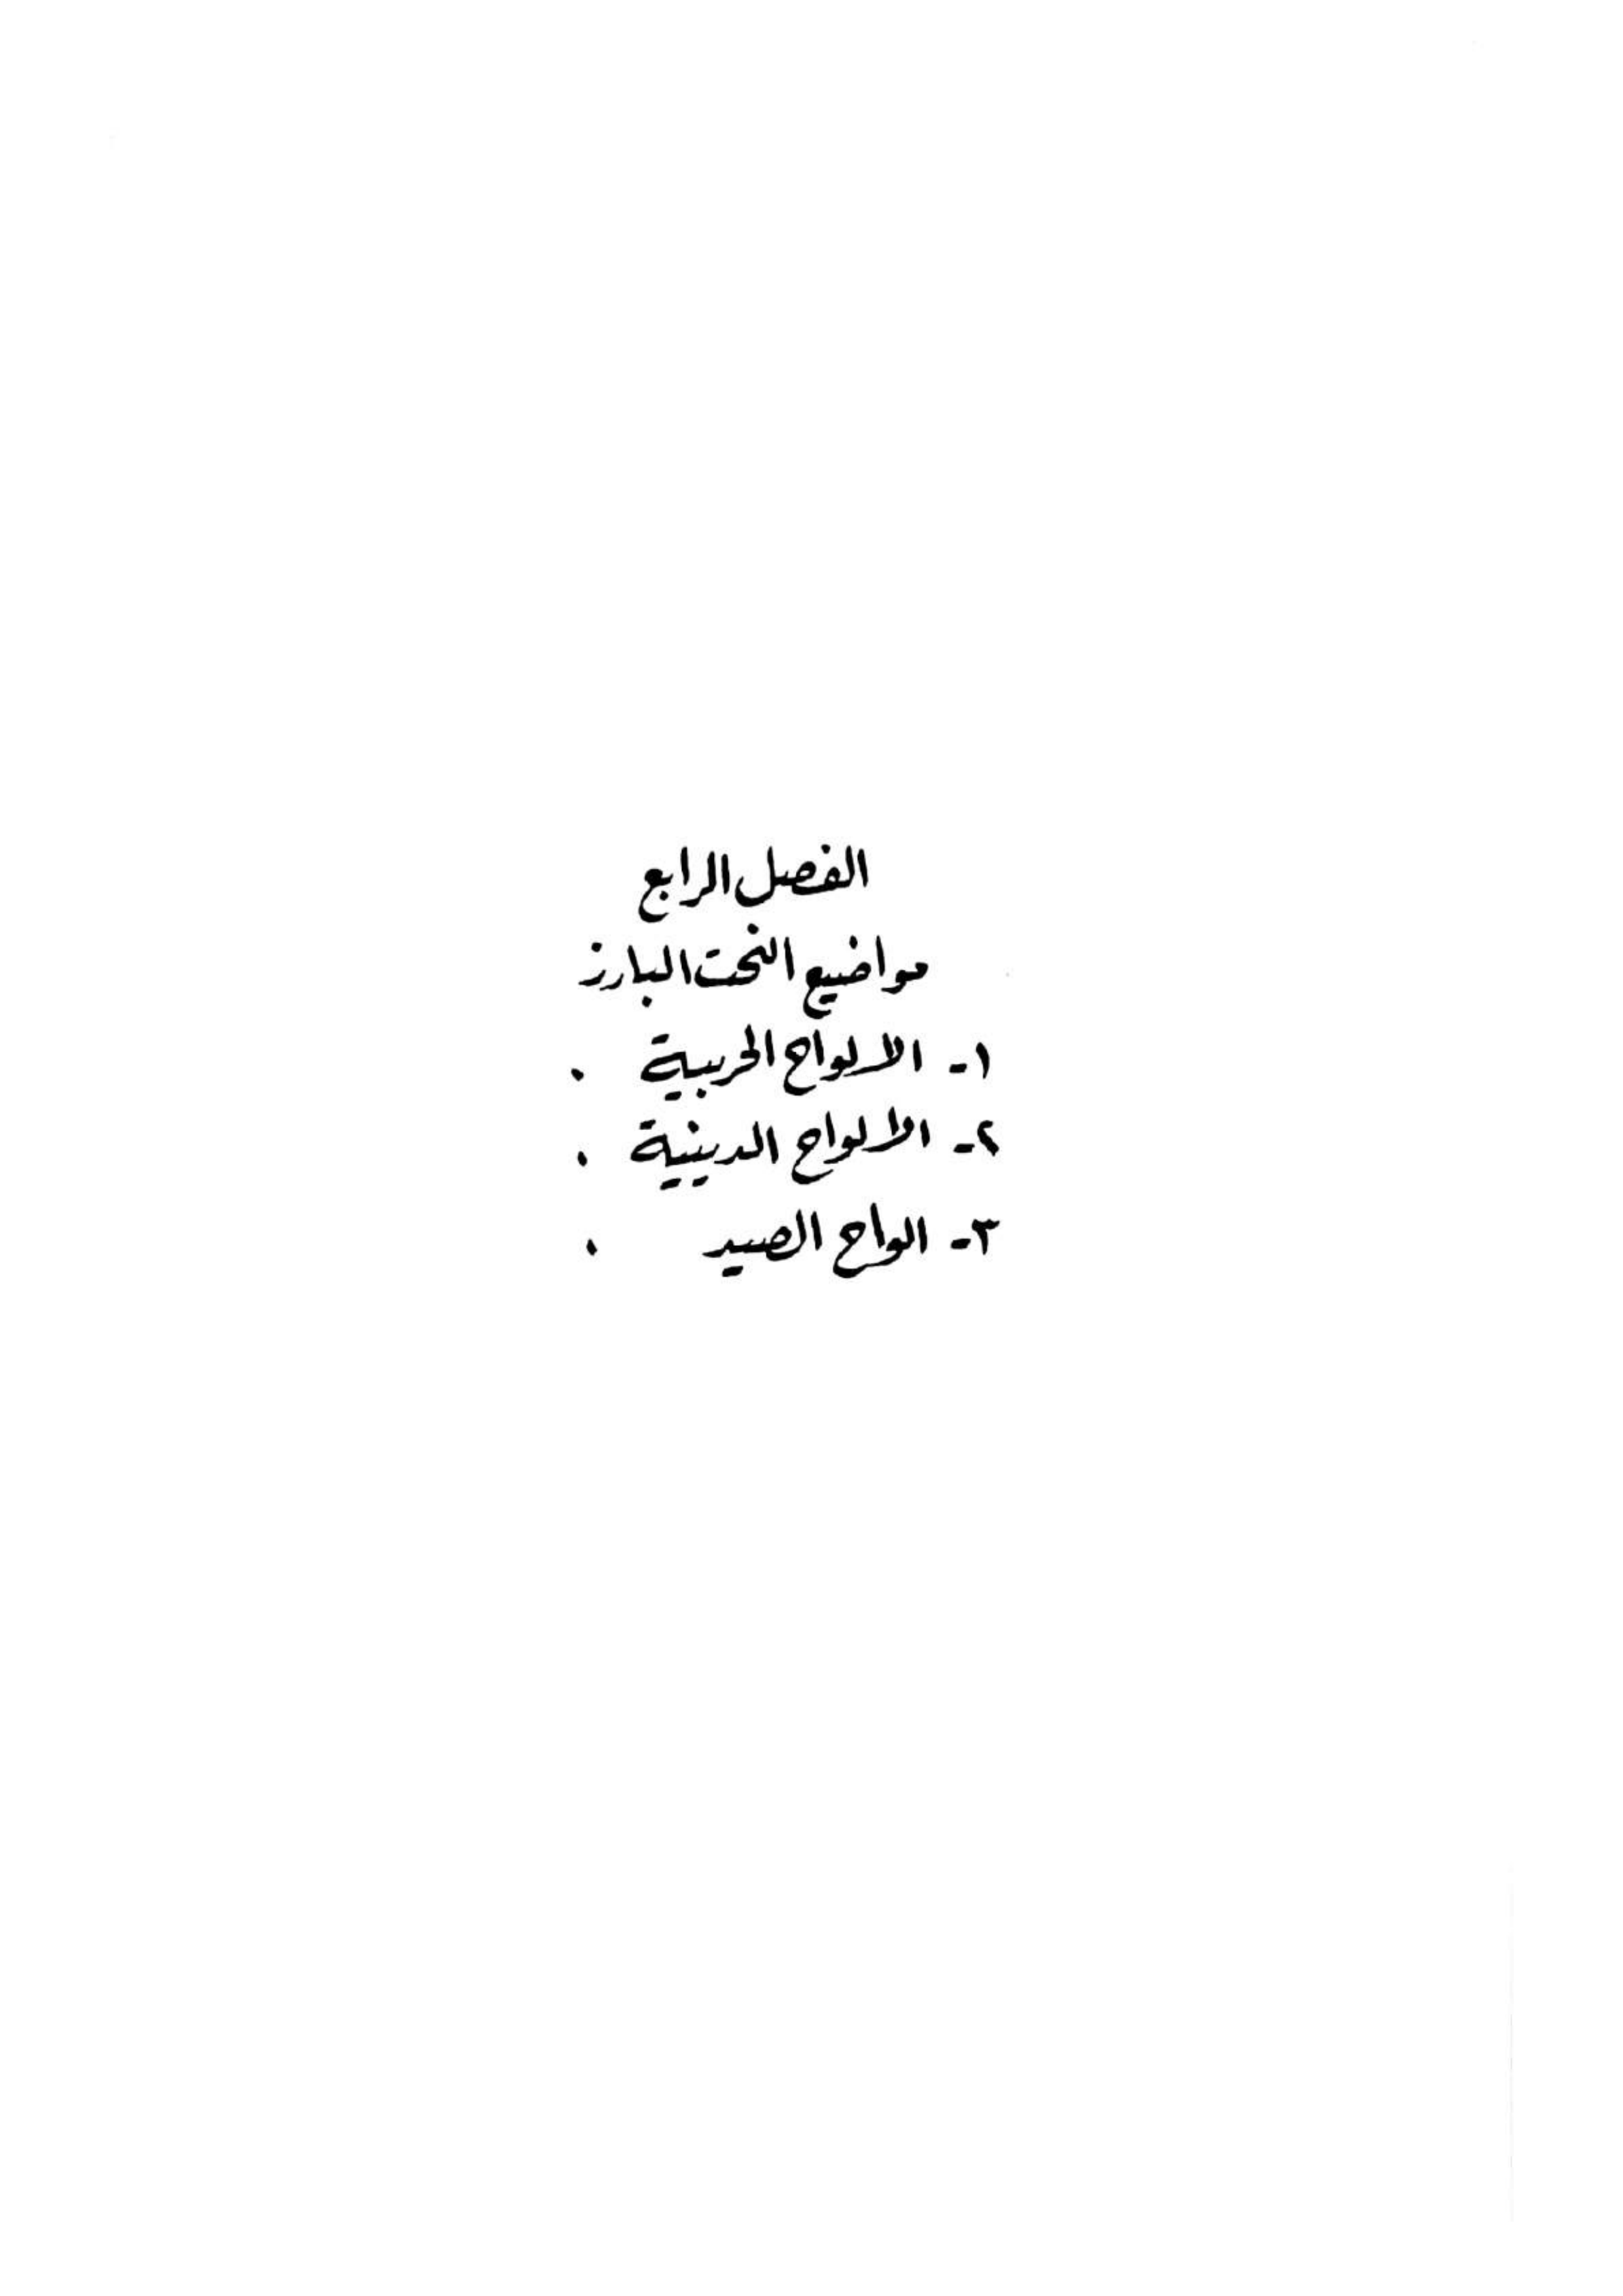 الفصل الرابع
مواضيع النحت البارز
١- الالواح الحربية .
٢- الالواح الدينية .
٣- الواح الصيد .